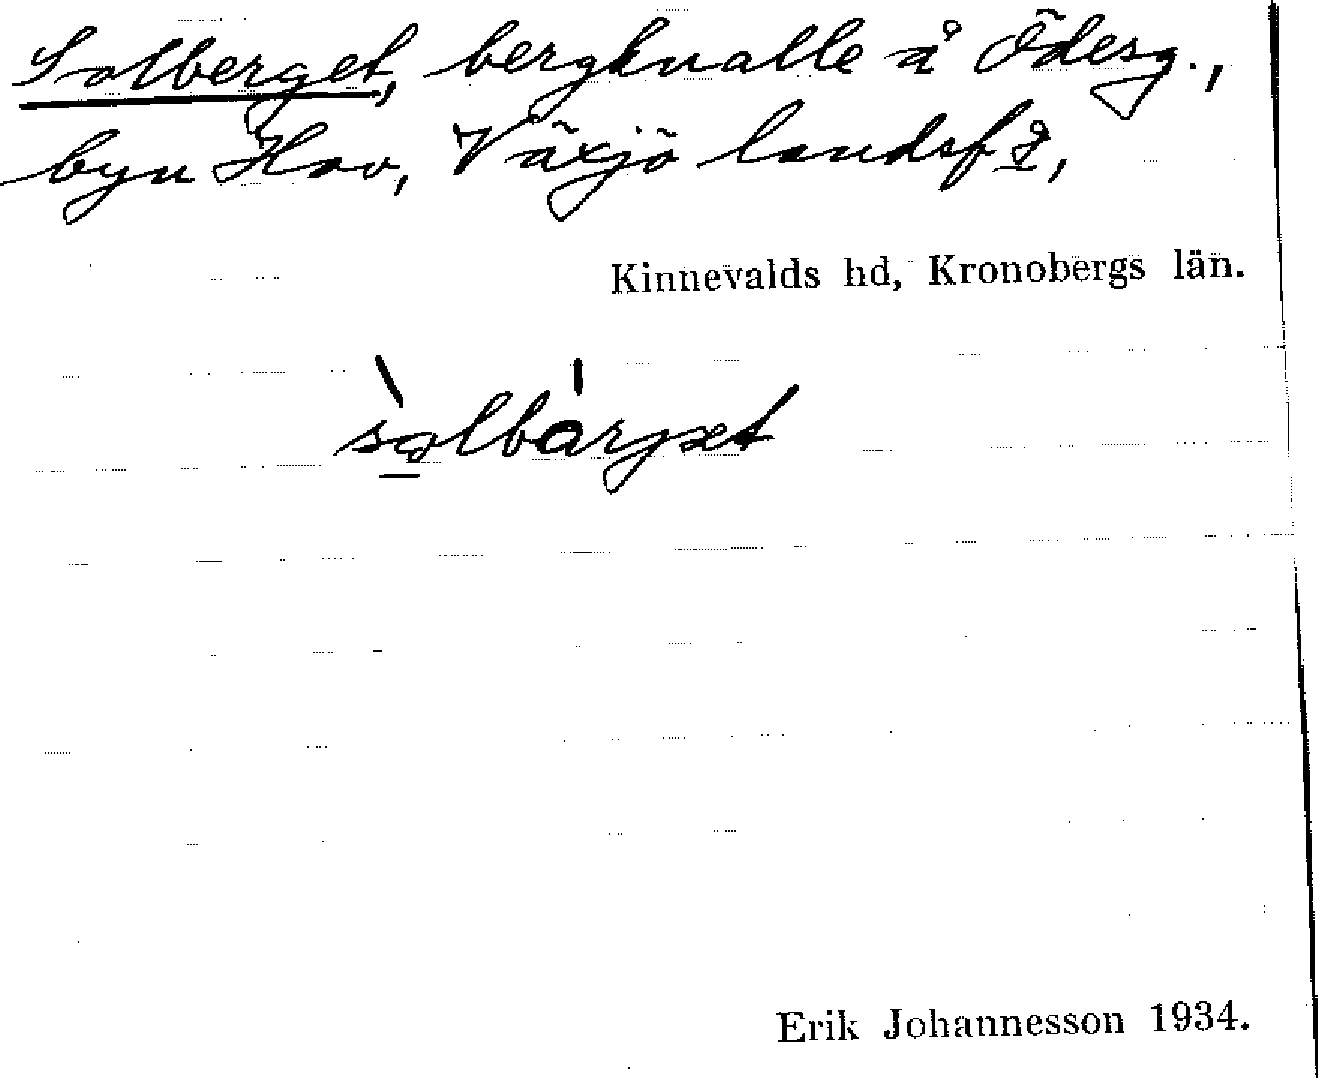 Solberget, bergknalle å Ödesg.,
byn Hov, Växjö landsf 2,
Kinnevalds hd, Kronobergs län.
sɷlbárgət
Erik Johannesson 1934.